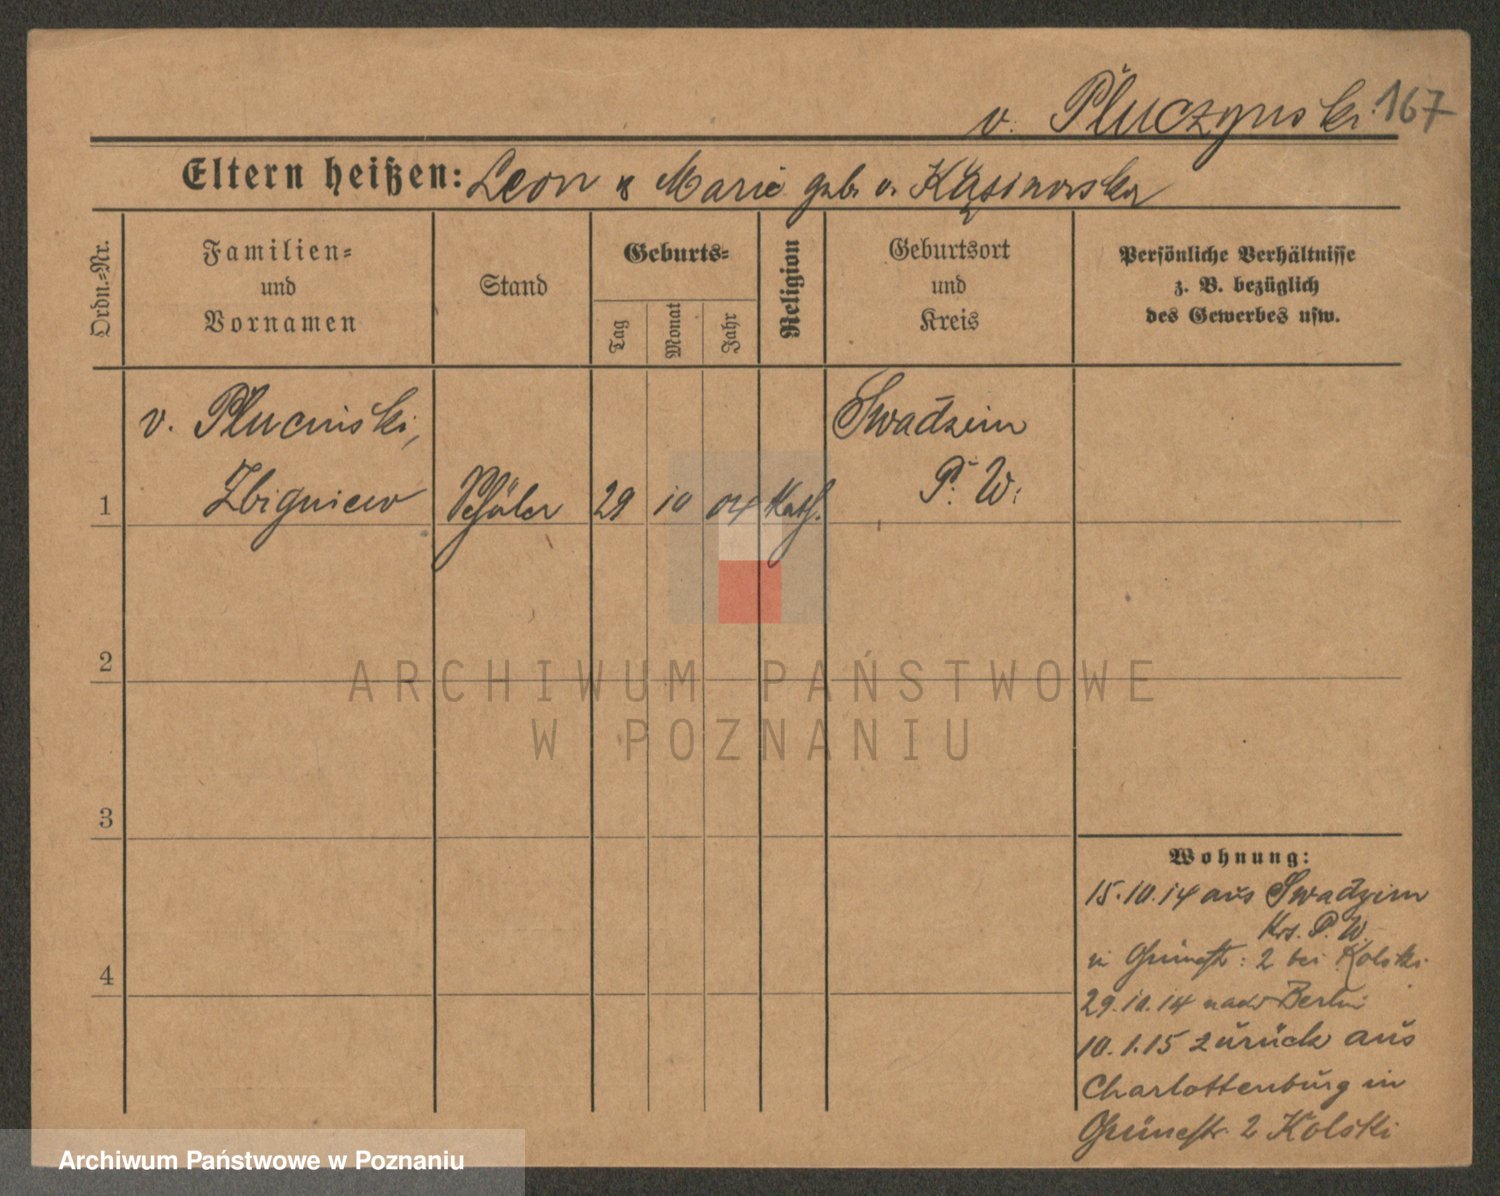 v. Płuczynski 167
Eltern heißen: Leon & Marie geb. v. Kąsinowska
Ordn.-Nr.
Familien-
und
Vornamen
Stand
Geburts-
Tag
Monat
Jahr
Religion
Geburtsort
und
Kreis
Persönliche Verhältnisse
z. B. bezüglich
des Gewerbes usw.
v. Plucinski, Swadzim
1 Zbigniew Schüler 29 10 04 Kath. P. W.
2
3
4
Wohnung:
15.10.14 aus Swadzim
Krs. P. W.
in Grünestr. 2 bei Kolski
29.10.14 nach Berlin
10.1.15 zurück aus
Charlottenburg in
Grünestr. 2 Kolski
ARCHIWUM PAŃSTWOWE
W POZNANIU
Archiwum Państwowe w Poznaniu